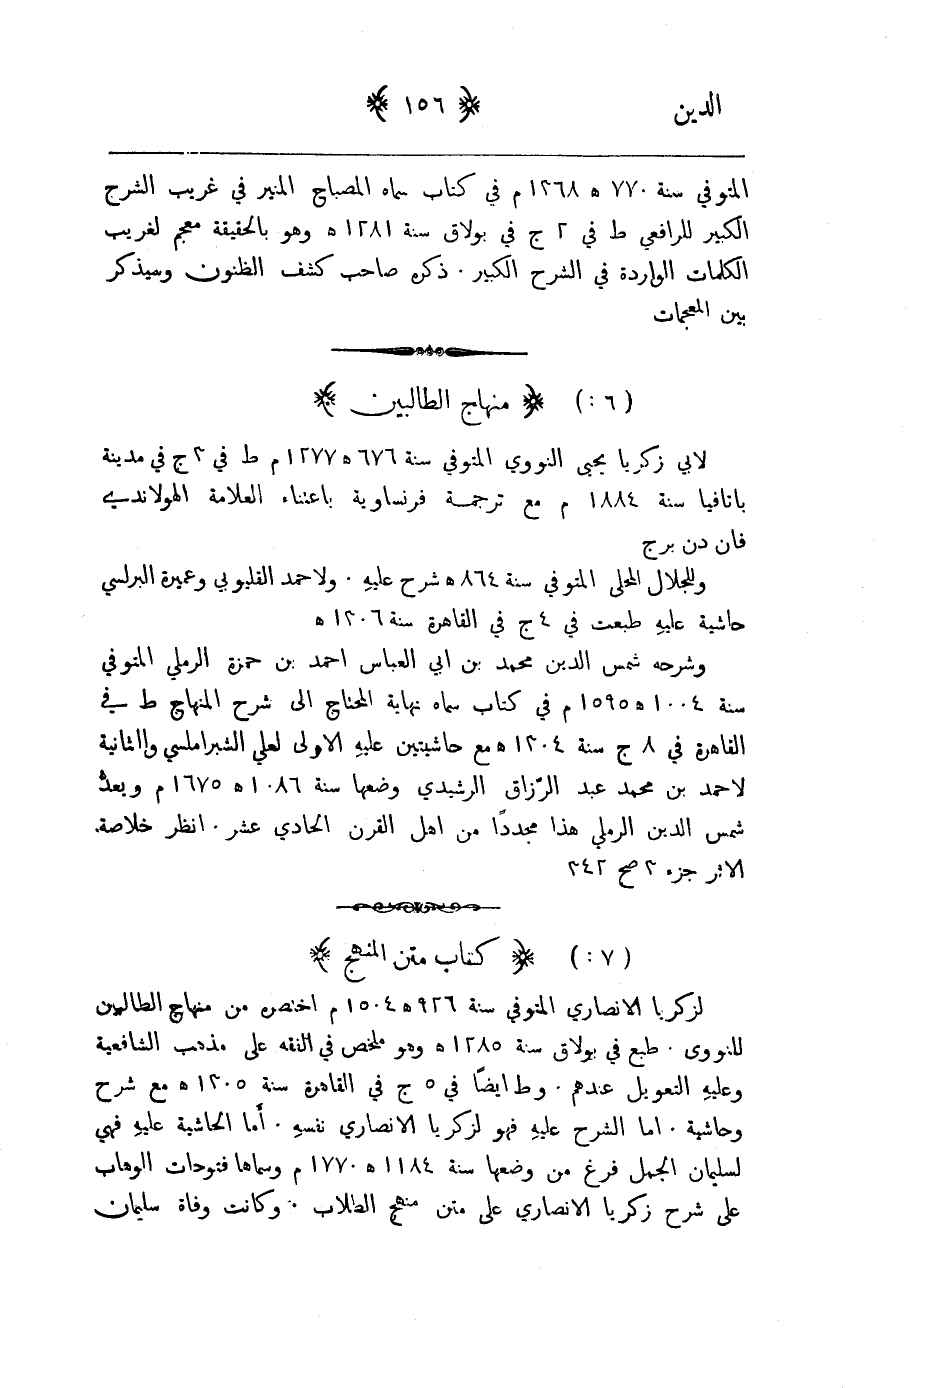 الدين ﴿ ١٥٦ ﴾
المتوفي سنة ٧٧٠ ه ١٣٦٨ م في كتاب سماه المصباح المنير في غريب الشرح
الكبير للرافعي ط في ٢ ج في بولاق سنة ١٢٨١ ه وهو بالحقيقة معجم لغريب
الكلمات الواردة في الشرح الكبير · ذكره صاحب كشف الظنون وسيذكر
بين المعجمات
( ٦ : ) ﴿ منهاج الطالبين ﴾
لابي زكريا يحيى النووي المتوفي سنة ٦٧٦ ه ١٢٧٧ م ط في ٣ ج في مدينة
باتافيا سنة ١٨٨٤ م مع ترجمة فرنساوية باعتناء العلامة الهولاندي
فان دن برج
وللجلال المحلي المتوفي سنة ٨٦٤ ه شرح عليهِ · ولاحمد القليوبي وعميرة البرلسي
حاشية عليهِ طبعت في ٤ ج في القاهرة سنة ١٣٠٦ ه
وشرحه شمس الدين محمد بن ابي العباس احمد بن حمزة الرملي المتوفي
سنة ١٠٠٤ ه ١٥٩٥ م في كتاب سماه نهاية المحتاج الى شرح المنهاج ط في
القاهرة في ٨ ج سنة ١٣٠٤ ه مع حاشيتين عليهِ الاولى لعلي الشبراملسي والثانية
لاحمد بن محمد عبد الرّزاق الرشيدي وضعها سنة ١٠٨٦ ه ١٦٧٥ م ويعدُّ
شمس الدين الرملي هذا مجددًا من اهل القرن الحادي عشر · انظر خلاصة
الاثر جزء ٣ صح ٣٤٢
( ٧ : ) ﴿ كتاب متن المنهج ﴾
لزكريا الانصاري المتوفي سنة ٩٢٦ ه ١٥٠٤ م اختصره من منهاج الطالبين
للنووى · طبع في بولاق سنة ١٢٨٥ ه وهو ملخص في الفقه على مذهب الشافعية
وعليهِ التعويل عندهم · وط ايضًا في ٥ ج في القاهرة سنة ١٣٠٥ ه مع شرح
وحاشية · اما الشرح عليهِ فهو لزكريا الانصاري نفسهِ · أَما الحاشية عليهِ فهي
لسليمان الجمل فرغ من وضعها سنة ١١٨٤ ه ١٧٧٠ م وسماها فتوحات الوهاب
على شرح زكريا الانصاري على متن منهج الطلاب · وكانت وفاة سليمان